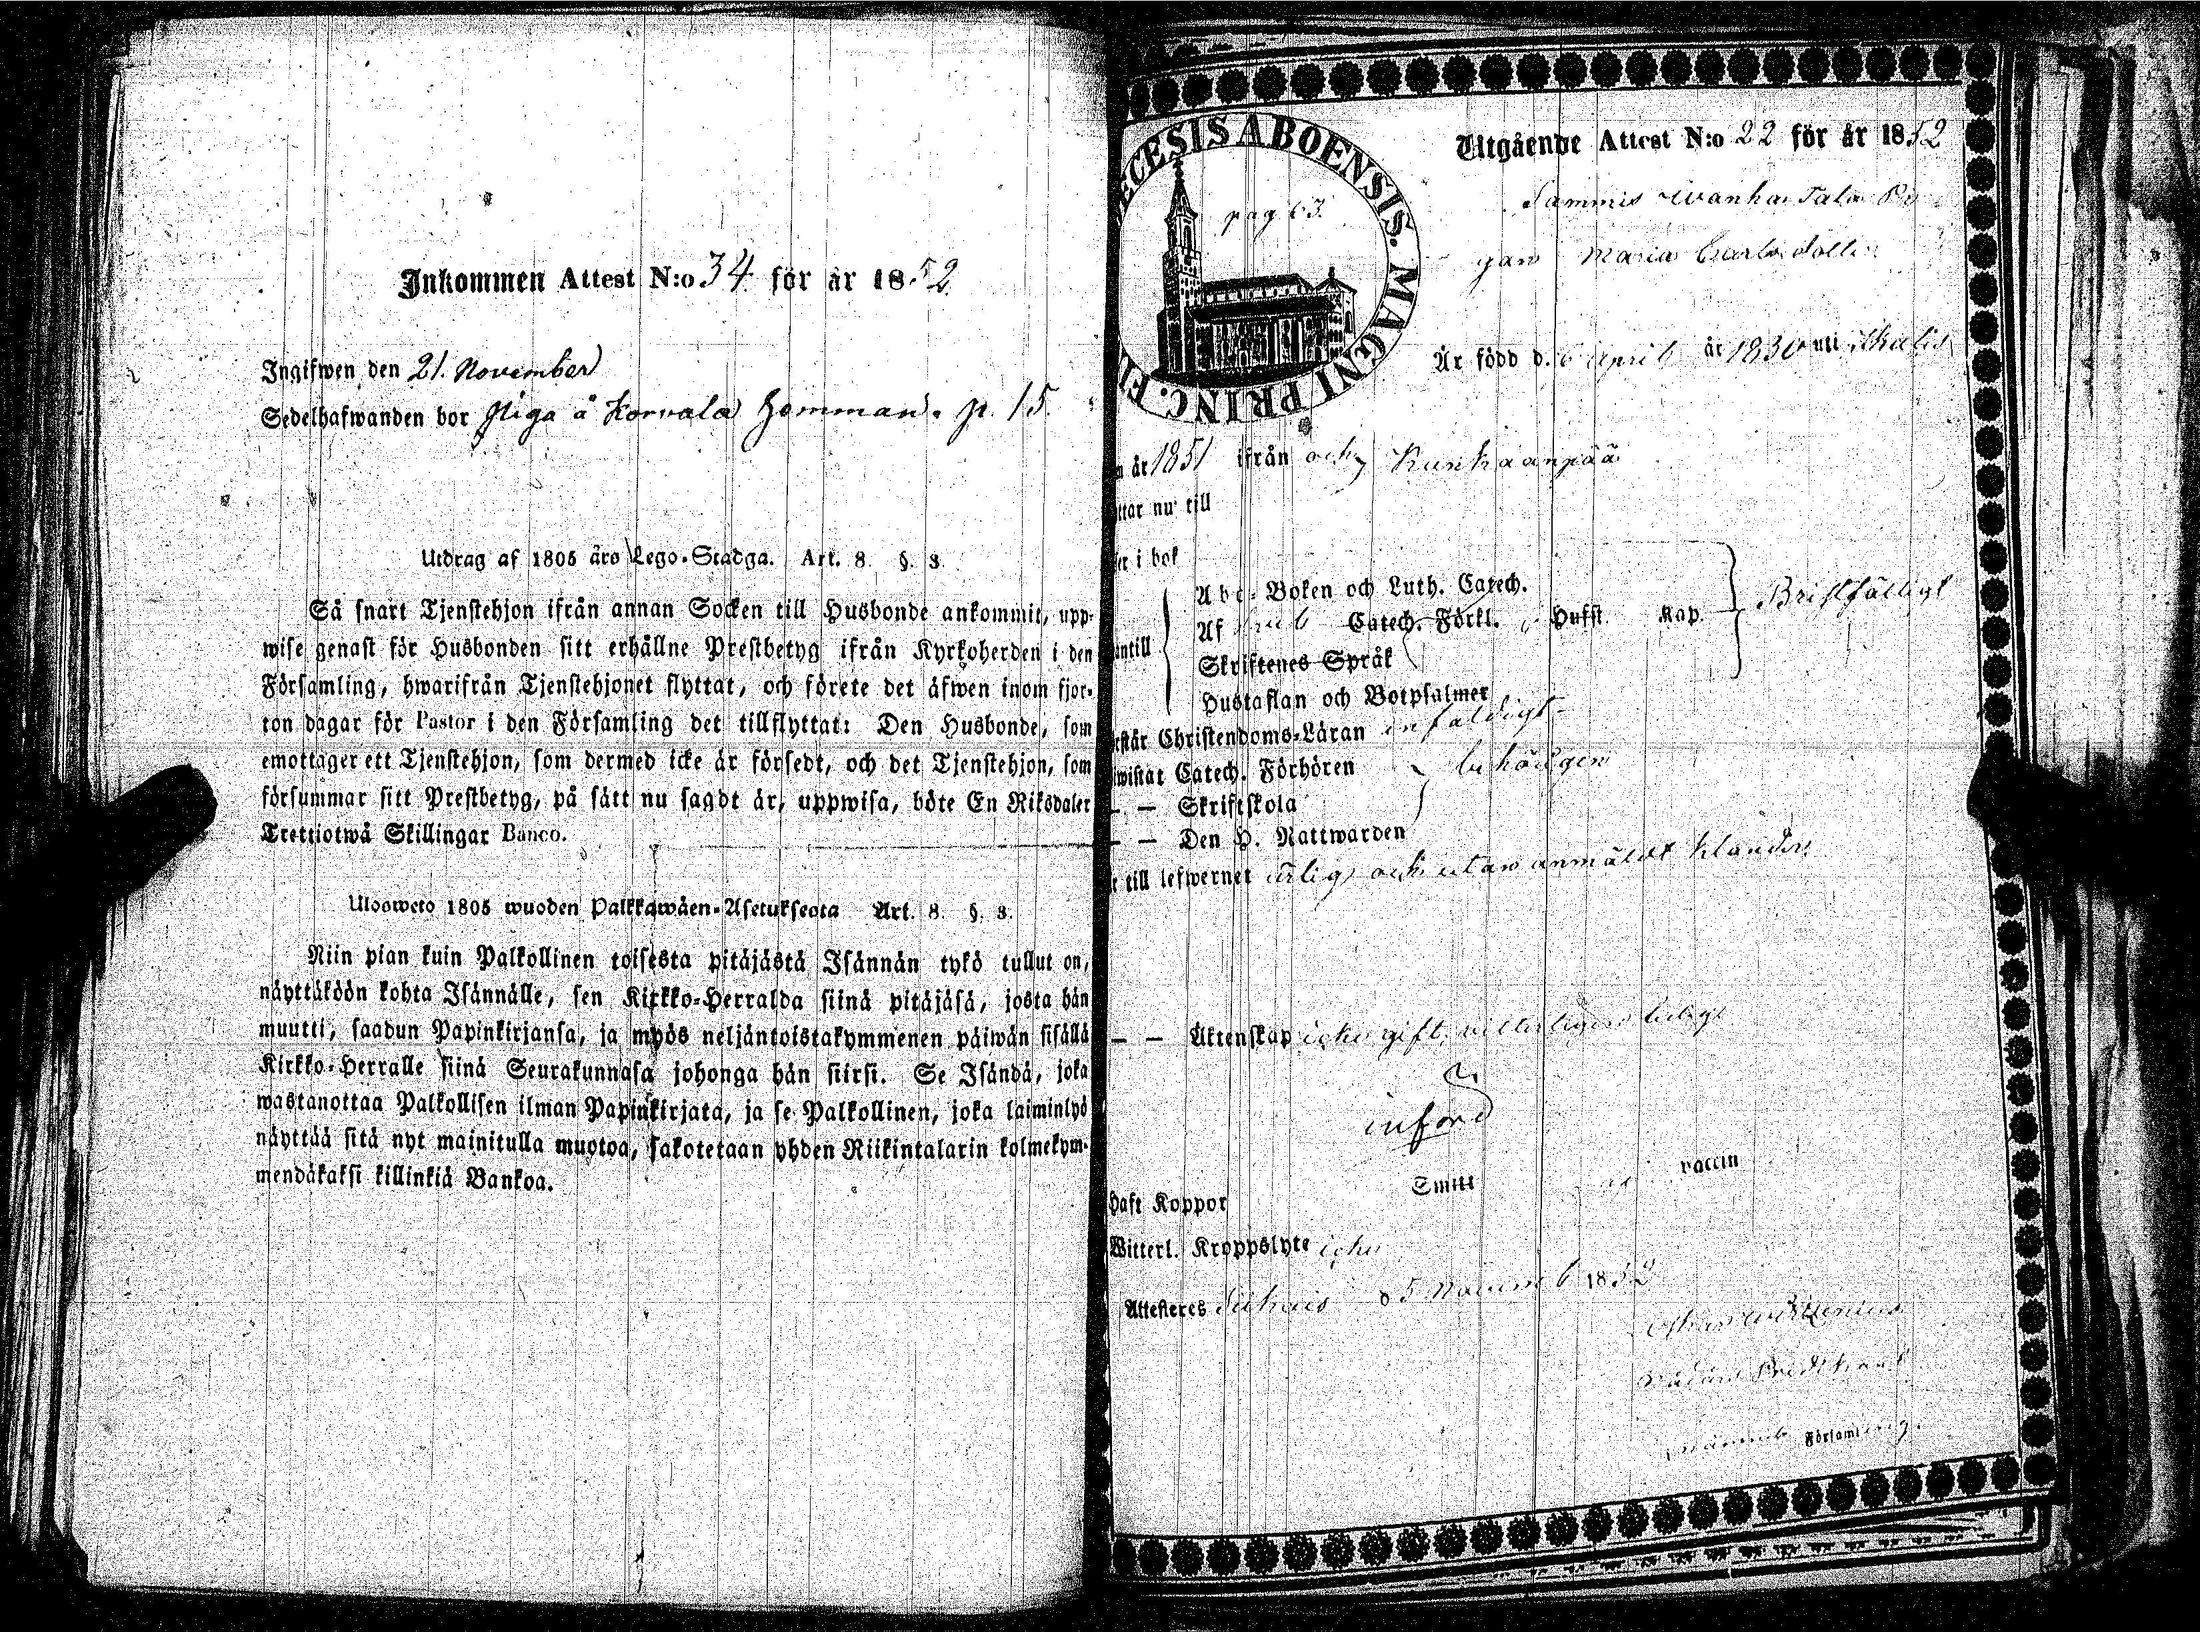 Inkommen Attest N:o 34 för år 1852
Ingifwen den 21. November
Sedelhafwanden bor Piga å Korvala hemman. p. 15.
Utdrag af 1805 års Lego-Stadga. Art. 8. §. 3.
Så snart Tjenstehjon ifrån annan Socken till Husbonde ankommit, upp-
wise genast för Husbonden sitt erhållne Prestbetyg ifrån Kyrkoherden i den
Församling, hwarifrån Tjenstehjonet flyttat, och förete det äfwen inom fjor-
ton dagar för Pastor i den Församling det tillflyttat: Den Husbonde, som
emottager ett Tjenstehjon, som dermed icke är försedt, och det Tjenstehjon, som
försummar sitt Prestbetyg, på sätt nu sagdt är, uppwisa, böte En Riksdaler
Trettiotwå Skillingar Banco.
Ulosweto 1805 wuoden Palkkawäen-Asetuksesta Art. 8. §. 3.
Niin pian kuin Palkollinen toisesta pitäjästä Isännän tykö tullut on,
näyttäköön kohta Isännälle, sen Kirkko-Herralda siinä pitäjäsä, josta hän
muutti, saadun Papinkirjansa, ja myös neljäntoistakymmenen päiwän sisällä
Kirkko-Herralle siinä Seurakunnasa johonga hän siirsi. Se Isändä, joka
wastanottaa Palkollisen ilman Papinkirjata, ja se Palkollinen, joka laiminlyö
näyttää sitä nyt mainitulla muotoa, sakotetaan yhden Riikintalarin kolmekym-
mendäkaksi killinkiä Bankoa.
ECESIS ABOENSIS. MAGNI PRINC. FI
pag 63.
Utgående Attest N:o 22 för år 1852
Sammis Wanha Tala Pi
gan Maria Carlsdotter
Är född d. 6 April år 1830 uti Ikalis
n år 1851 ifrån och Kankaanpää
ttar nu till
er i bok
Abc-Boken och Luth. Catech.
Af Catech. Förkl. Hufst. Kap. Bristfälligt
antill Skriftenes Språk
Hustaflan och Botpsalmer
rstår Christendoms-Läran enfaldigt
wistat Catech. Förhören behörigen
— — Skriftskola
— — Den H. Nattwarden
t till lefwernet ärlig och utan anmäldt klander
— — Äktenskap icke gift, vitterligen ledig
införd
Haft Koppor Smitt vaccin
Witterl. Kroppslyte icke
Attesteres d 5 Novemb 1852
Församling.